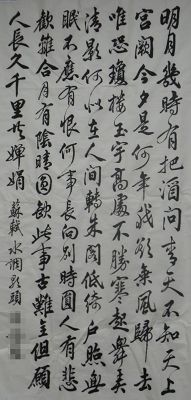 明月幾時有把酒問青天不知天上
宮闕今夕是何年我欲乘風歸去
唯恐瓊樓玉宇高處不勝寒起舞弄
清影何以在人間轉朱閣低綺戶照無
眠不應有恨何事長向別時圓人有悲
歡離合月有陰晴圓缺此事古難全但願
人長久千里共嬋娟 蘇軾水調歌頭